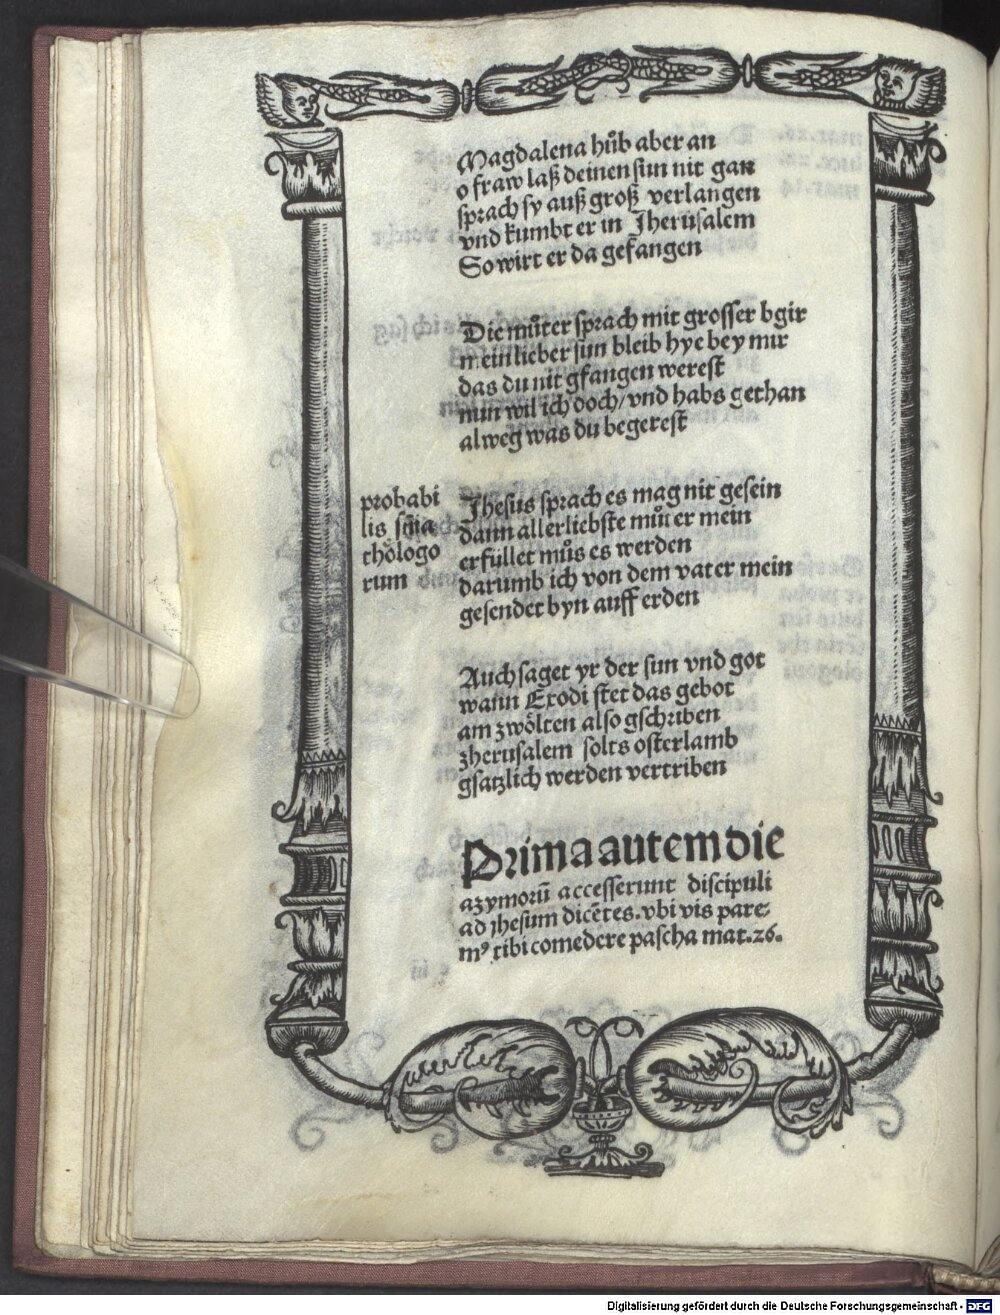 Magdalena hůb aber an
o fraw laß deinen sun nit gan
sprach sy auß groß verlangen
vnd kumbt er in Jherusalem
So wirt er da gefangen
Die můter sprach mit grosser bgir
mein lieber sun bleib hye bey mir
das du nit gfangen werest
nun wil ich doch/ vnd habs gethan
alweg was du begerest
probabi
lis snīa
thölogo
rum
Jhesus sprach es mag nit gesein
dann allerliebste můter mein
erfüllet můs es werden
darumb ich von dem vater mein
gesendet byn auff erden
Auch saget yr der sun vnd got
wann Exodi stet das gebot
am zwölten also gschriben
zherusalem solts osterlamb
gsatzlich werden vertriben
Prima autem die
azymorū accesserunt discipuli
ad jhesum dicētes. vbi vis pare-
mꝰ tibi comedere pascha mat. 26.
Digitalisierung gefördert durch die Deutsche Forschungsgemeinschaft - DFG